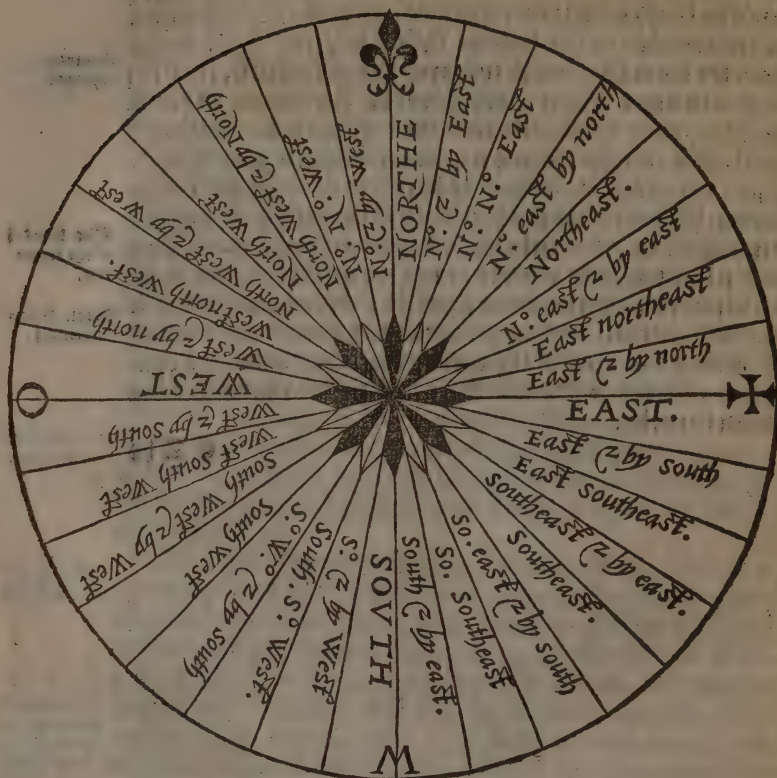 NORTHE
N.º &amp; by East
N.º N.º East
N.º east by north
Northeast.
N.º east &amp; by east
East northeast
East &amp; by north
EAST.
East &amp; by south
East southeast.
Southeast &amp; by east.
Southeast.
So. east &amp; by south
So. Southeast
South &amp; by east.
SOVTH
M
S.º &amp; by West
South. S.º West.
S.º W.º &amp; by south
South West
South West &amp; by West
West south West
West &amp; by south
WEST
O
West &amp; by north
Westnorth West.
North West &amp; by West
North West
North West &amp; by North
N.º N.º West
N.º &amp; by West